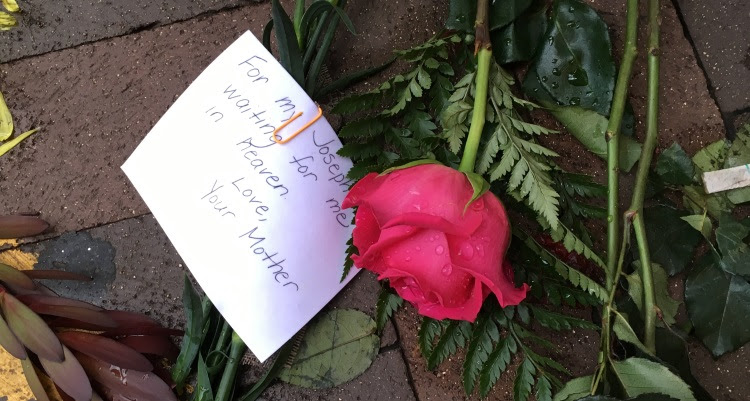 For my Joseph
waiting for me
in Heaven.
Love,
Your Mother